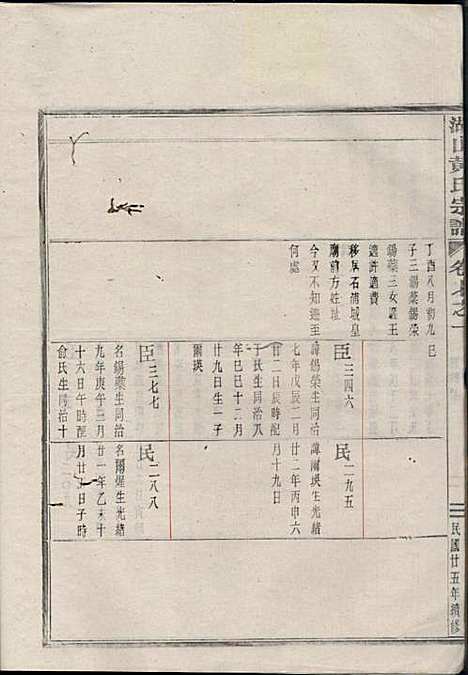 湖山黄氏宗譜
卷
之一
民國廿五年續修
丁酉八月初九巳
子三錫葉錫荣
錫葉三女適王
適許適費
移居石浦城皇
廟前方姓址
今又不知遷至
何處
臣三四六
諱錫荣生同治
七年戊辰二月
廿二日辰時配
于氏生同治八
年己巳十二月
廿九日生一子
爾瑛
民二九五
諱爾瑛生光緒
廿二年丙申六
月十九日
臣三七七
名錫葉生同治
九年庚午三月
十六日午時配
俞氏生同治十
民二八八
名爾煋生光緒
廿一年乙未十
月廿九日子時